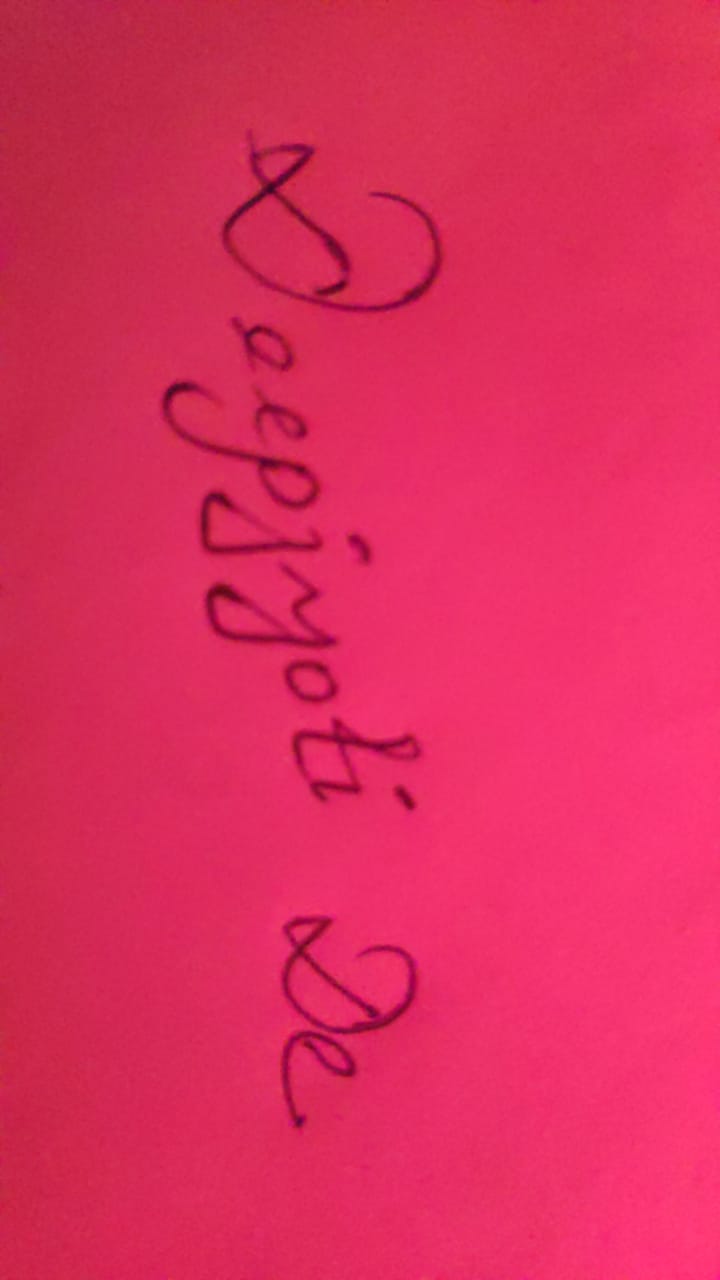 Deepjyoti De